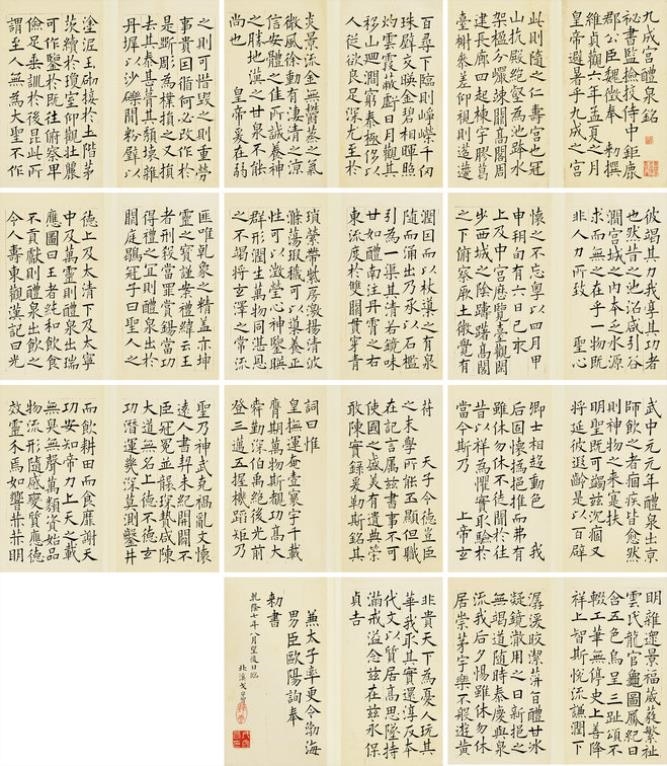 九成宮醴泉銘
祕書監撿挍侍中鉅鹿
郡公臣魏徵奉 勅撰
維貞觀六年孟夏之月
皇帝避暑乎九成之宮
此則隨之仁壽宮也冠
山抗殿絕壑為池跨水
架楹分巖竦闕高閣周
建長廊四起棟宇膠葛
臺榭參差仰視則迢遰
百尋下臨則崢嶸千仞
珠璧交暎金碧相暉照
灼雲霞蔽虧日月觀其
移山迴澗窮泰極侈以
人從欲良足深尤至於
炎景流金無鬱蒸之氣
微風徐動有淒清之涼
信安體之佳所誠養神
之勝地漢之甘泉不能
尚也 皇帝爰在弱
之則可惜毀之則重勞
事貴因循何必改作於
是斲彫為樸損之又損
去其泰甚葺其頹壞雜
丹墀以沙礫間粉壁以
塗泥玉砌接於土階茅
茨續於瓊室仰觀壯麗
可作鑒於既往俯察卑
儉足垂訓於後昆此所
謂至人無為大聖不作
彼竭其力我享其功者
也然昔之池沼咸引谷
澗宮城之內本乏水源
求而無之在乎一物既
非人力所致 聖心
懷之不忘粵以四月甲
申朔旬有六日己亥
上及中宮歷覽臺觀閑
步西城之陰躊躇高閣
之下俯察厥土微覺有
潤因而以杖導之有泉
隨而涌出乃承以石檻
引為一渠其清若鏡味
甘如醴南注丹霄之右
東流度於雙闕貫穿青
瑣縈帶紫房激揚清波
滌蕩瑕穢可以導養正
性可以澂瑩心神鑒暎
群形潤生萬物同湛恩
之不竭將玄澤之常流
匪唯乾象之精蓋亦坤
靈之寶謹案禮緯云王
者刑殺當罪賞錫當功
得禮之宜則醴泉出於
闕庭鶡冠子曰聖人之
德上及太清下及太寧
中及萬靈則醴泉出瑞
應圖曰王者純和飲食
不貢獻則醴泉出飲之
令人壽東觀漢記曰光
武中元元年醴泉出京
師飲之者痼疾皆愈然
則神物之來寔扶
明聖既可蠲茲沉痼又
將延彼遐齡是以百辟
卿士相趨動色 我
后固懷撝挹推而弗有
雖休勿休不徒聞於往
昔以祥為懼實取驗於
當今斯乃 上帝玄
符 天子令德豈臣
之末學所能丕顯但職
在記言屬茲書事不可
使國之盛美有遺典策
敢陳實錄爰勒斯銘其
詞曰惟
皇撫運奄壹寰宇千載
膺期萬物斯覩功高大
舜勤深伯禹絕後光前
登三邁五握機蹈矩乃
聖乃神武克禍亂文懷
遠人書契未紀開闢不
臣冠冕並襲琛贄咸陳
大道無名上德不德玄
功潛運幾深莫測鑿井
而飲耕田而食靡謝天
功安知帝力上天之載
無臭無聲萬類資始品
物流形隨感變質應德
效靈介焉如響赫赫明
明雜遝景福葳蕤繁祉
雲氏龍官龜圖鳳紀日
含五色烏呈三趾頌不
輟工筆無停史上善降
祥上智斯悅流謙潤下
潺湲皎潔萍旨醴甘冰
凝鏡澈用之日新挹之
無竭道隨時泰慶與泉
流我后夕惕雖休勿休
居崇茅宇樂不般遊黃
非貴天下為憂人玩其
華我取其實還淳反本
代文以質居高思墜持
滿戒溢念茲在茲永保
貞吉
兼太子率更令勃海
男臣歐陽詢奉
勑書
乾隆七年八月望後日臨
北溟戈